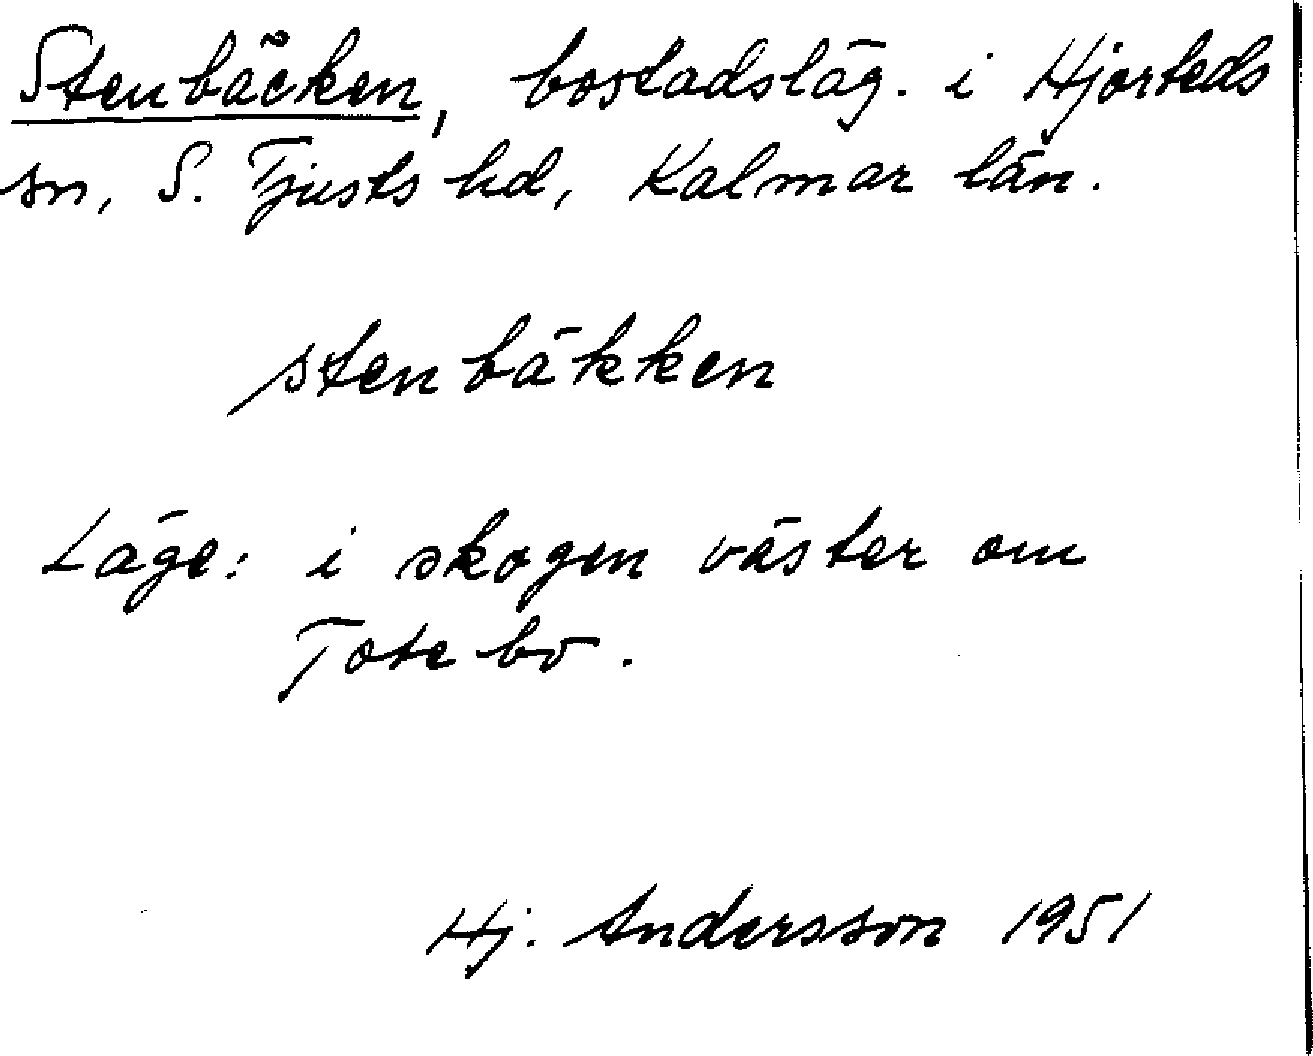 Stenbäcken, bostadsläg. i Hjorteds
sn, S. Tjusts hd, Kalmar län.
stenbäkken
Läge: i skogen väster om
Totebo.
Hj. Andersson 1951